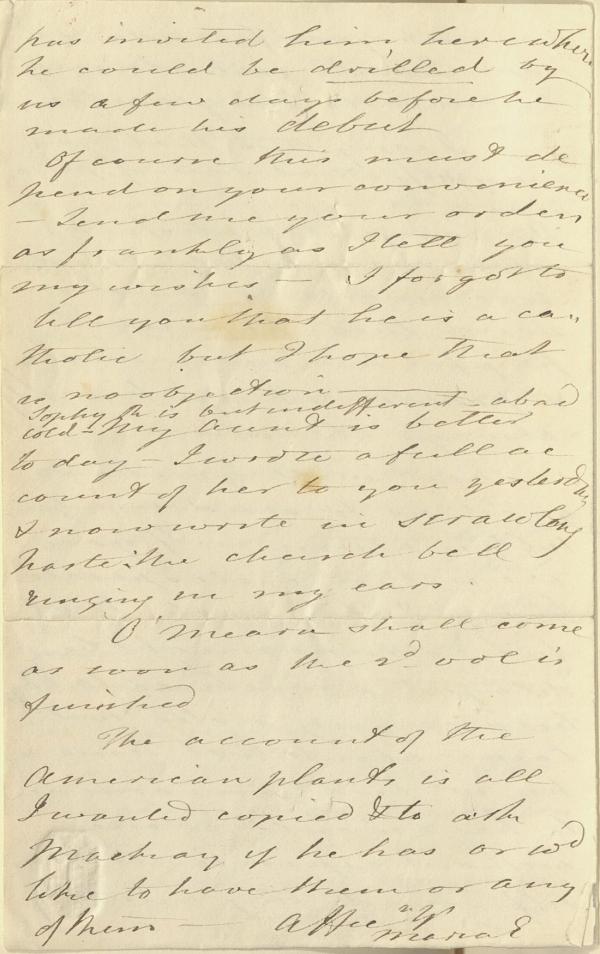 has invited him here where
he could be drilled by
us a few days before he
made his debut
Of course this must de
pend on your convenience
– Send me your orders
as frankly as I tell you
my wishes — I forgot to
tell you that he is a ca-
tholic but I hope that
is no objection —
Sophy is but indifferent – a bad
cold – My Aunt is better
to day – I wrote a full ac
count of her to you yesterday
& now write in scrawling
haste the church bell
ringing in my ears.
O'Meara shall come
as soon as the 2d vol is
finished
The account of the
American plants is all
I wanted copied & to ask
Mackay if he has or wd
like to have them or any
of them — Affecly
Maria E